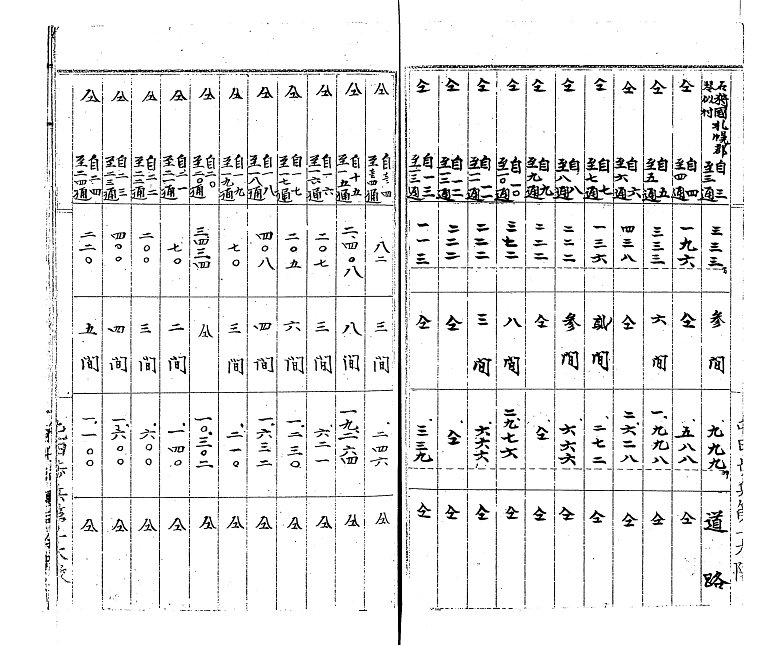 石狩國札幌郡琴似村 自三至三通 三三三 参間 九九九 道路
仝 自四至四通 一九六 仝 五八八 仝
仝 自五至五通 三三三 六間 一、九九八 仝
仝 自六至六通 四三八 仝 二、六二八 仝
仝 自七至七通 一三六 貳間 二七二 仝
仝 自八至八通 二二二 参間 六六六 仝
仝 自九至九通 二二二 仝 仝 仝
仝 自一〇至一〇通 三七二 八間 二、九七六 仝
仝 自一一至一一通 二二二 三間 六六六 仝
仝 自一二至一二通 二二二 仝 仝 仝
仝 自一三至一三通 一一三 仝 三三九 仝
仝 自一四至一四通 八二 三間 二四六 仝
仝 自十五至一五通 二、四〇八 八間 一九、二六四 仝
仝 自一六至一六通 二〇七 三間 六二一 仝
仝 自一七至一七通 二〇五 六間 一、二三〇 仝
仝 自一八至一八通 四〇八 四間 一、六三二 仝
仝 自一九至一九通 七〇 三間 二一〇 仝
仝 自二〇至二〇通 三四三四 仝 一〇、三〇二 仝
仝 自二一至二一通 七〇 二間 一、四〇 仝
仝 自二二至二二通 二〇〇 三間 六〇〇 仝
仝 自二三至二三通 四〇〇 四間 一、六〇〇 仝
仝 自二四至二四通 二二〇 五間 一、一〇〇 仝